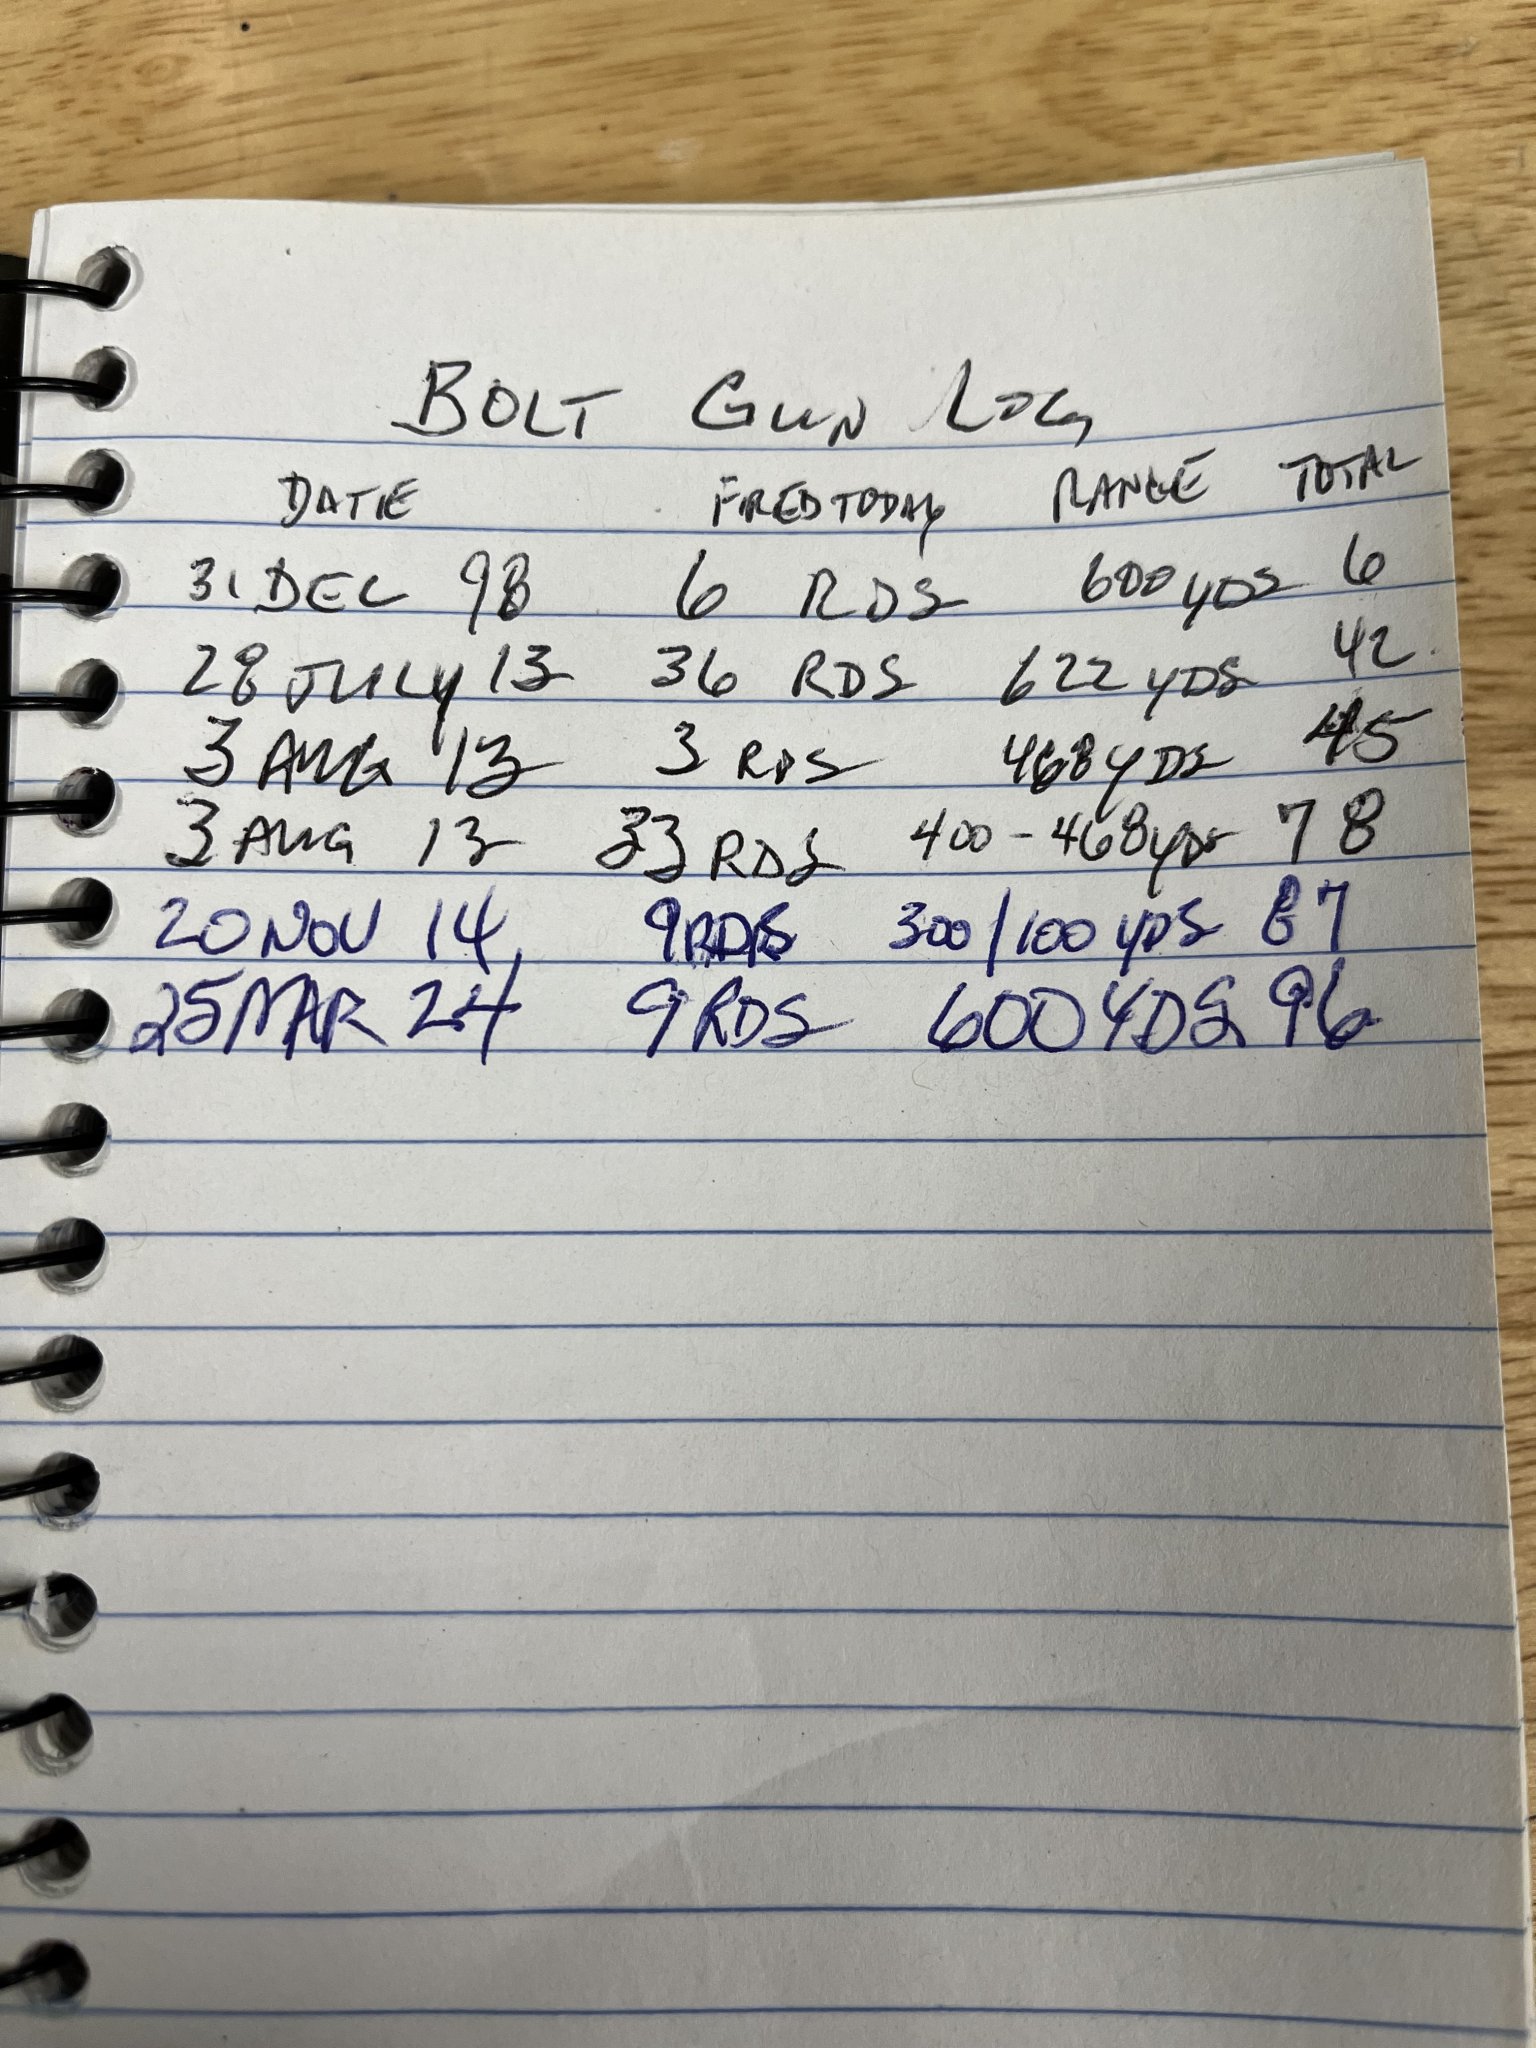 BOLT GUN LOG
DATE FIRED TODAY RANGE TOTAL
31 DEC 98 6 RDS 600 YDS 6
28 JULY 13 36 RDS 622 YDS 42
3 AUG 13 3 RDS 468 YDS 45
3 AUG 13 33 RDS 400-468 YDS 78
20 NOV 14 9 RDS 300/100 YDS 87
25 MAR 24 9 RDS 600 YDS 96